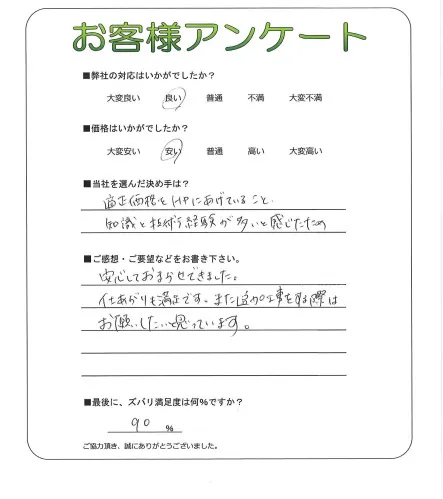 お客様アンケート
■弊社の対応はいかがでしたか？
大変良い 良い 普通 不満 大変不満
■価格はいかがでしたか？
大変安い 安い 普通 高い 大変高い
■当社を選んだ決め手は？
適正価格をHPにあげていること.
知識と技術、経験が多いと感じたため
■ご感想・ご要望などをお書き下さい。
安心しておまかせできました。
仕あがりも満足です。また工事をする際は
お願いしたいと思っています。
■最後に、ズバリ満足度は何%ですか？
90 %
ご協力頂き、誠にありがとうございました。